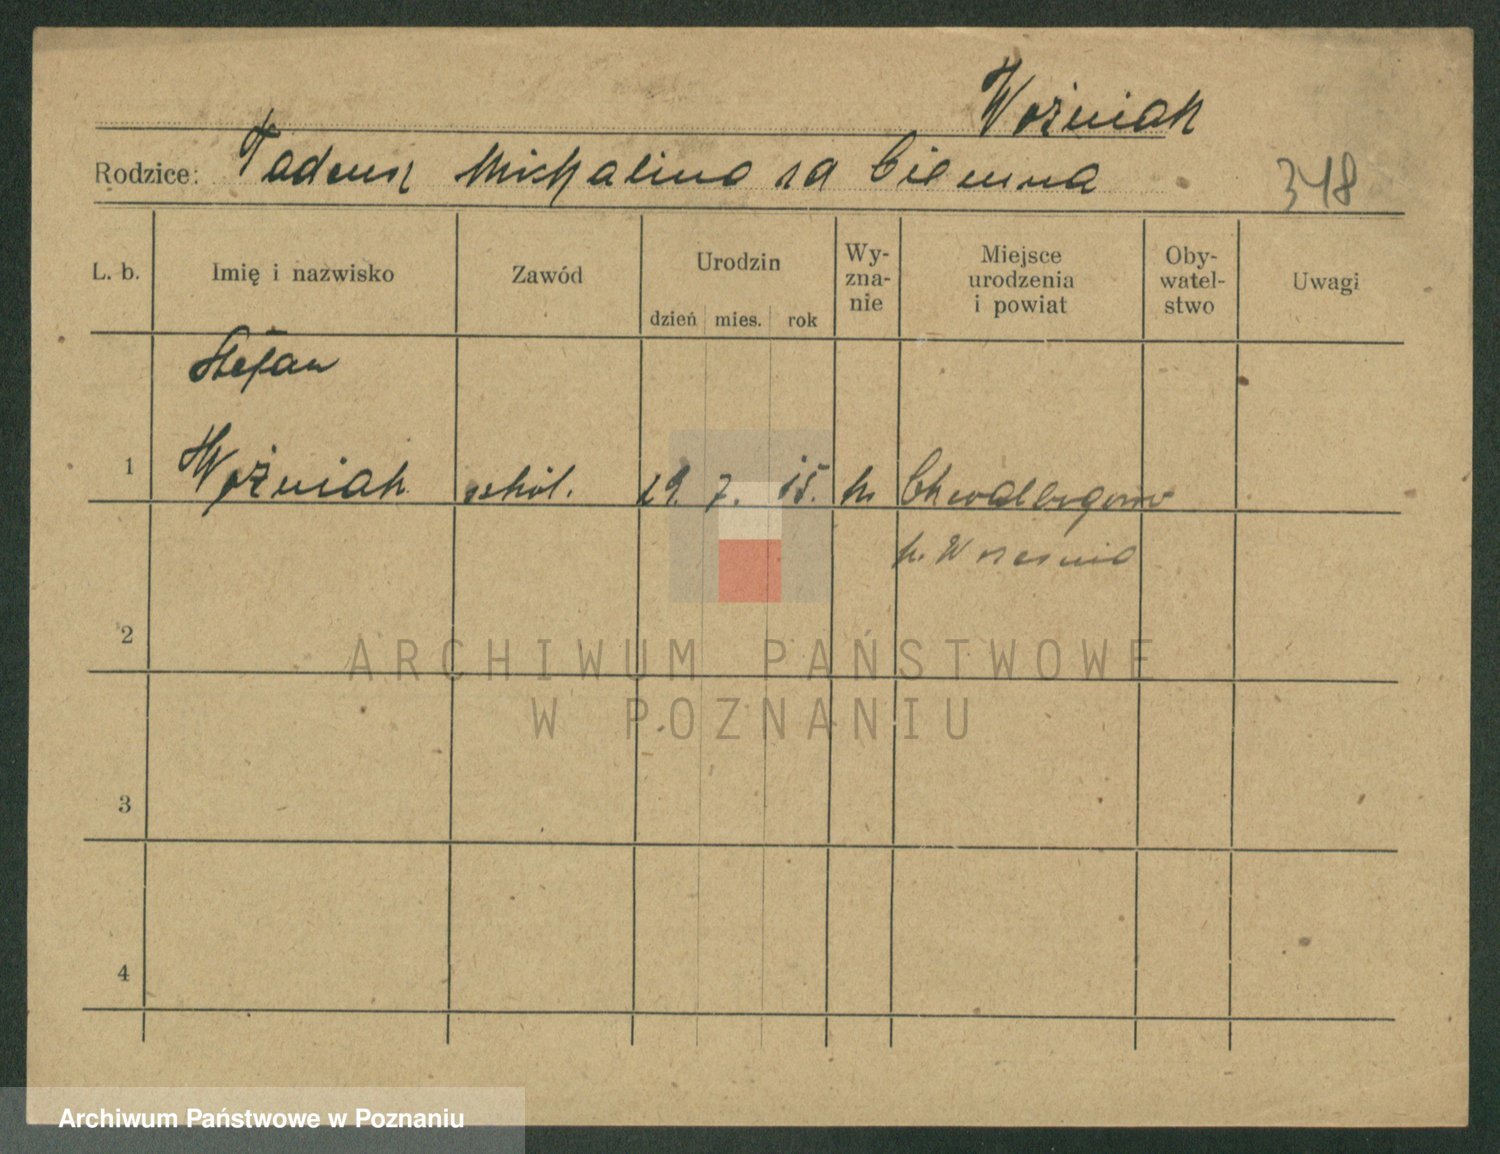 Woźniak
Rodzice: Tadeusz Michalina za Ciemna
348
L. b. Imię i nazwisko Zawód Urodzin dzień mies. rok Wy-zna-nie Miejsce urodzenia i powiat Oby-watel-stwo Uwagi
Stefan
1 Woźniak 29. 7. 15. k.
p. Września
2
3
4
ARCHIWUM PAŃSTWOWE
W POZNANIU
Archiwum Państwowe w Poznaniu